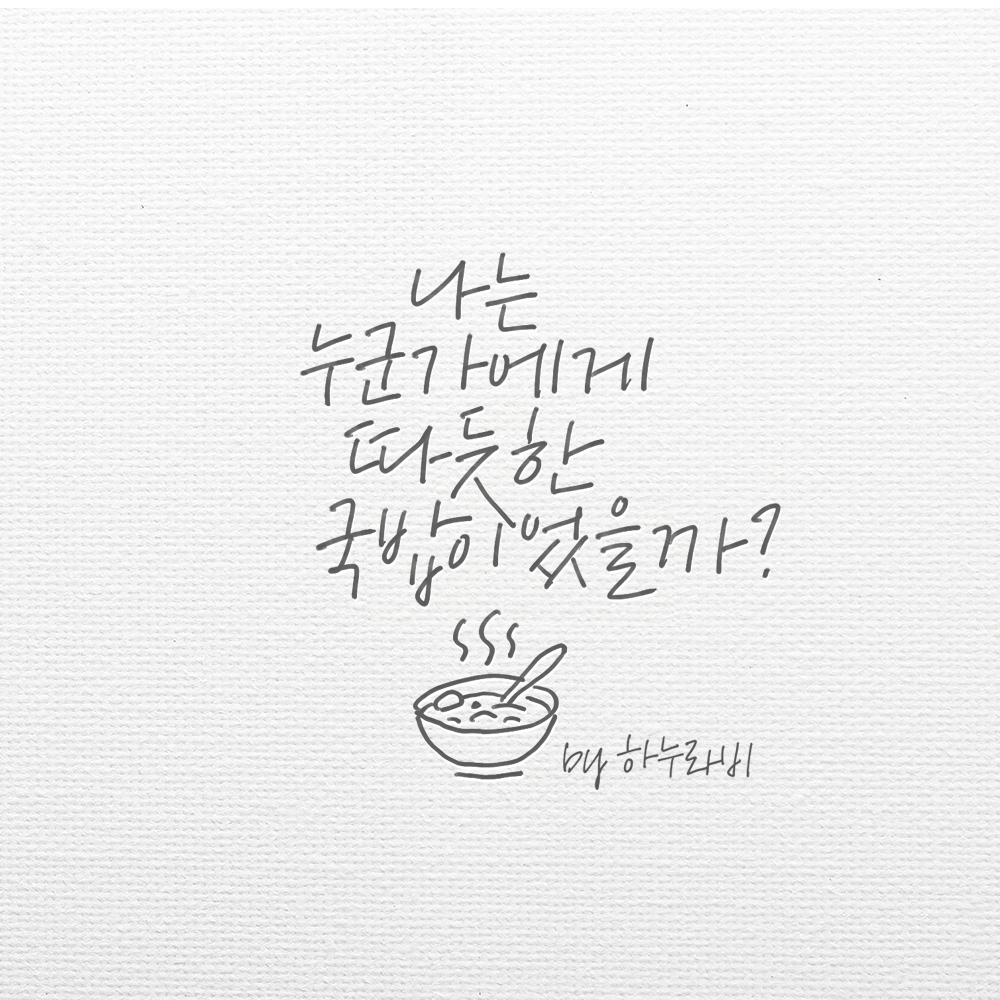 나는
누군가에게
따듯한
국밥이었을까?
by 하누라비